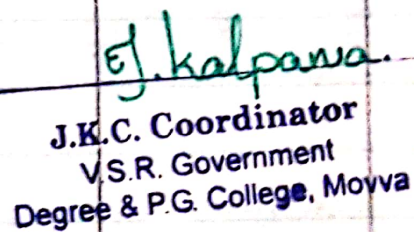 EJ. kalpana.
J.K.C. Coordinator
V.S.R. Government
Degree & P.G. College, Movva